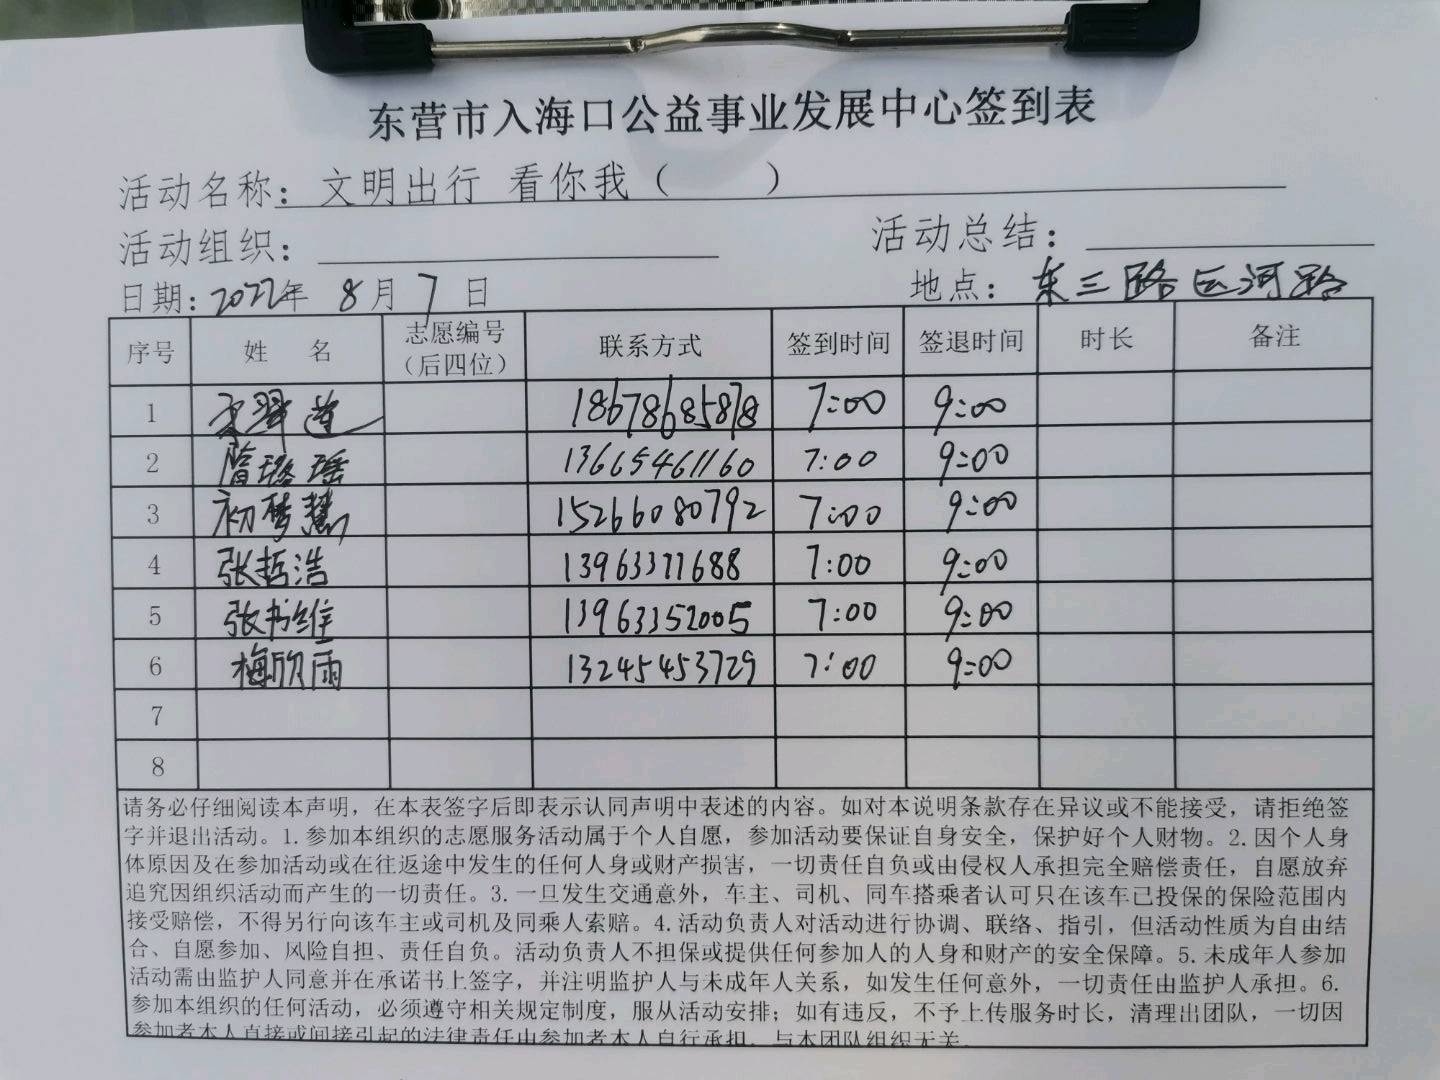 东营市入海口公益事业发展中心签到表
活动名称：文明出行 看你我（    ）
活动组织： 活动总结：
日期：2022年 8月 7 日 地点：东三路运河路
序号 姓 名 志愿编号（后四位） 联系方式 签到时间 签退时间 时长 备注
1 18678685878 7:00 9:00
2 13665461160 7:00 9:00
3 初梦慧 15266080792 7:00 9:00
4 张哲浩 13963371688 7:00 9:00
5 张书维 13963352005 7:00 9:00
6 梅欣雨 13245453729 7:00 9:00
7
8
请务必仔细阅读本声明，在本表签字后即表示认同声明中表述的内容。如对本说明条款存在异议或不能接受，请拒绝签
字并退出活动。1.参加本组织的志愿服务活动属于个人自愿，参加活动要保证自身安全，保护好个人财物。2.因个人身
体原因及在参加活动或在往返途中发生的任何人身或财产损害，一切责任自负或由侵权人承担完全赔偿责任，自愿放弃
追究因组织活动而产生的一切责任。3.一旦发生交通意外，车主、司机、同车搭乘者认可只在该车已投保的保险范围内
接受赔偿，不得另行向该车主或司机及同乘人索赔。4.活动负责人对活动进行协调、联络、指引，但活动性质为自由结
合、自愿参加、风险自担、责任自负。活动负责人不担保或提供任何参加人的人身和财产的安全保障。5.未成年人参加
活动需由监护人同意并在承诺书上签字，并注明监护人与未成年人关系，如发生任何意外，一切责任由监护人承担。6.
参加本组织的任何活动，必须遵守相关规定制度，服从活动安排；如有违反，不予上传服务时长，清理出团队，一切因
参加者本人直接或间接引起的法律责任由参加者本人自行承担，与本团队组织无关。